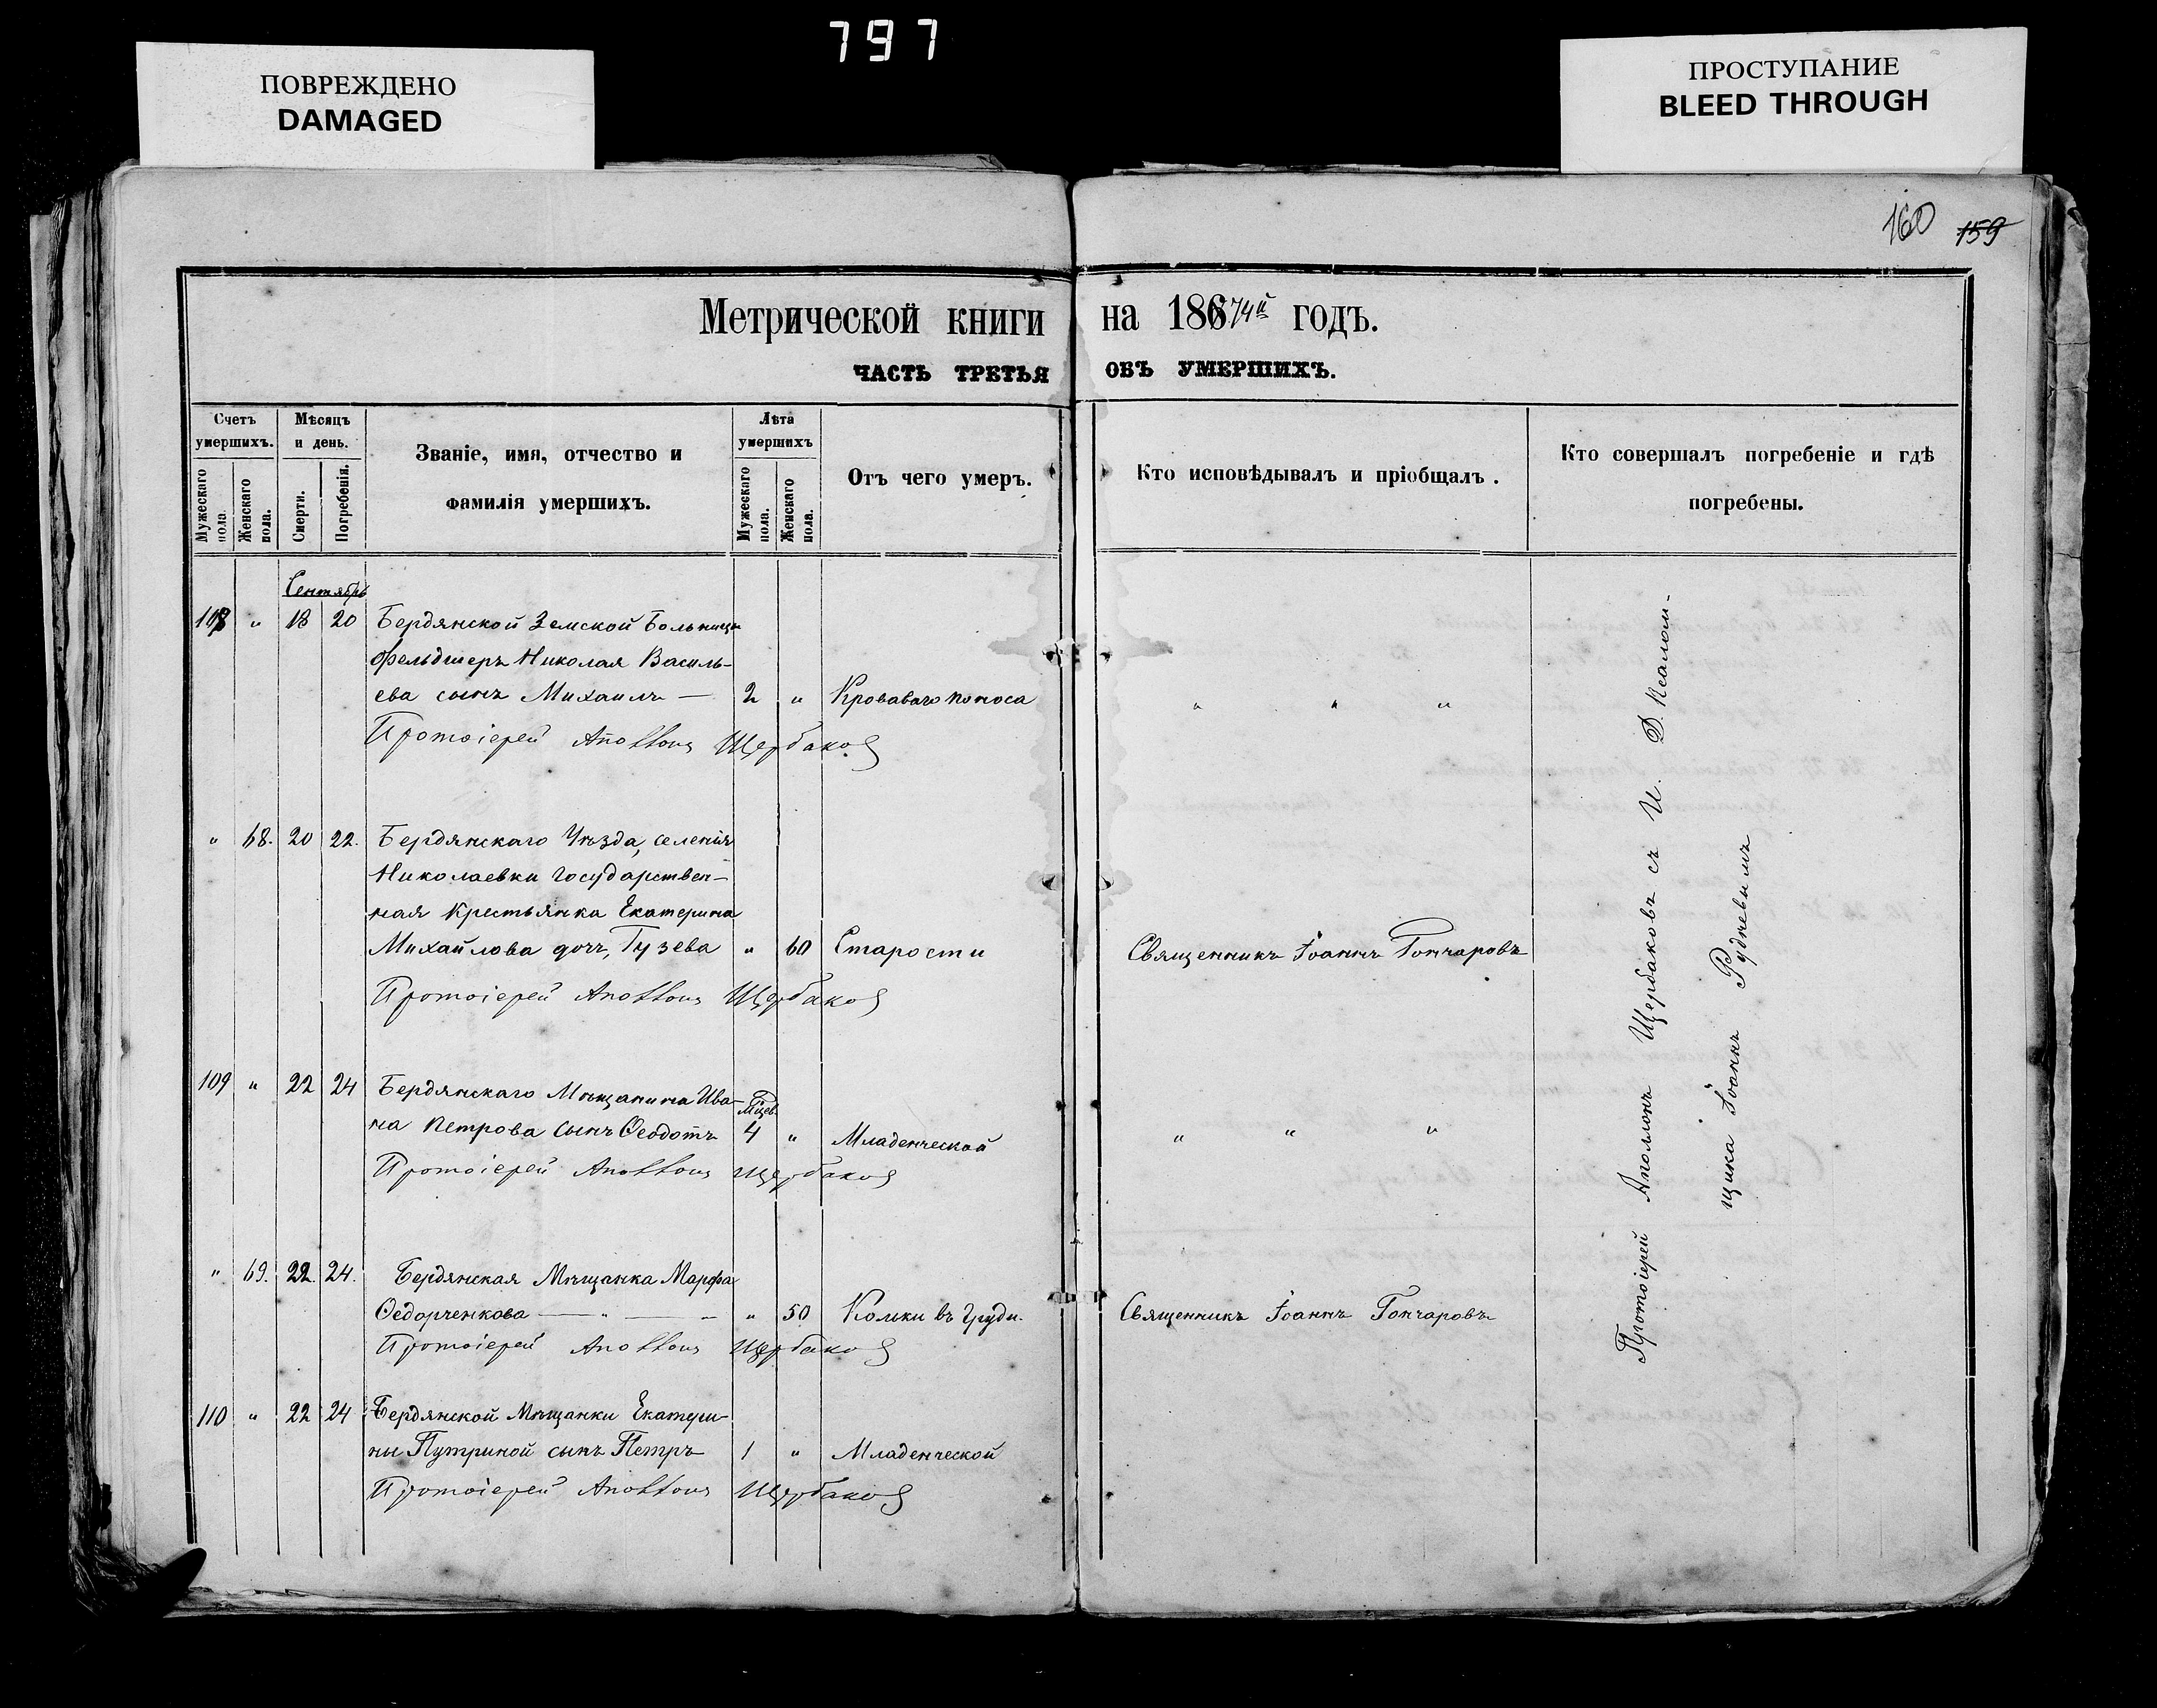 797
ПОВРЕЖДЕНО
DAMAGED
ПРОСТУПАНИЕ
BLEED THROUGH
160 159
Метрической книги на 18674й годъ.
ЧАСТЬ ТРЕТЬЯ ОБЪ УМЕРШИХЪ.
Счетъ умершихъ.
Мужескаго пола
Женскаго пола.
Мѣсяцъ и день.
Смерти.
Погребенія.
Званіе, имя, отчество и
фамилія умершихъ.
Лѣта умершихъ
Мужескаго пола.
Женскаго пола.
Отъ чего умеръ.
Кто исповѣдывалъ и пріобщалъ.
Кто совершалъ погребеніе и гдѣ
погребены.
Сентябрь
108 " 18 20 Бердянской Земской Больницы
фельдшера Николая Василь-
ева сынъ Михаилъ — 2 " Кроваваго поноса " " "
Протоіерей Аполлонъ Щербаковъ
" 68. 20 22. Бердянскаго Уѣзда, селенія
Николаевки Государствен-
ная крестьянка Екатерина
Михайлова доч, Гузева " 60 Старости Священникъ Іоаннъ Гончаровъ
Протоіерей Аполлонъ Щербаковъ
109 " 22 24 Бердянскаго Мѣщанина Ива-
на Петрова сынъ Ѳеодотъ 4 " Младенческой " " "
Протоіерей Аполлонъ Щербаковъ
" 69. 22. 24. Бердянская Мѣщанка Марфа
Ѳедорченкова — " — " 50 Кольки въ груди. Священникъ Іоаннъ Гончаровъ
Протоіерей Аполлонъ Щербаковъ
110 " 22 24 Бердянской Мѣщанки Екатери-
ны Путриной сынъ Петръ 1 " Младенческой
Протоіерей Аполлонъ Щербаковъ
Протоіерей Аполлонъ Щербаковъ съ И. Д. Псалом-
щика Іоаннъ Рудневымъ